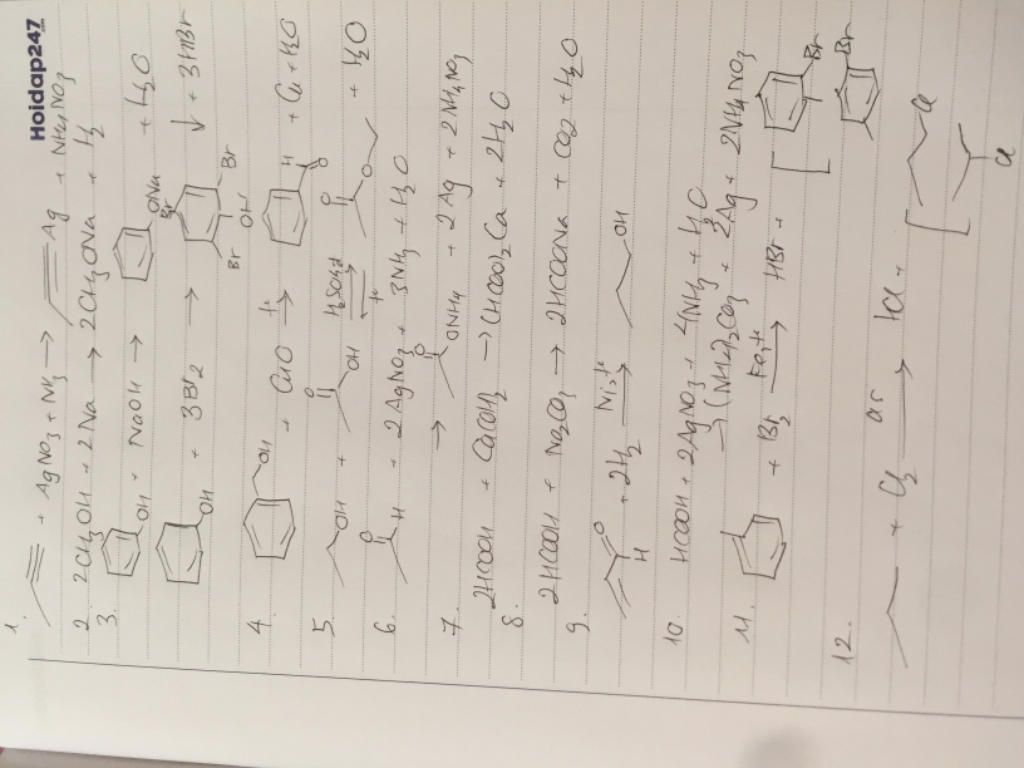 Hoidap247
1.
+ AgNO3 + NH3 → Ag + NH4NO3
2. 2CH3OH + 2Na → 2CH3ONa + H2
3.
OH + NaOH → ONa + H2O
OH + 3Br2 → Br Br Br OH ↓ + 3HBr
4. OH + CuO → H O + Cu + H2O
5. OH + O OH H2SO4đ ⇌ t° O O + H2O
6. O H + 2AgNO3 + 3NH3 + H2O
→ O ONH4 + 2Ag + 2NH4NO3
7.
2HCOOH + Ca(OH)2 → (HCOO)2Ca + 2H2O
8.
2HCOOH + Na2CO3 → 2HCOONa + CO2 + H2O
9.
O H + 2H2 Ni,t° → OH
10. HCOOH + 2AgNO3 + 4NH3 + H2O
→ (NH4)2CO3 + 2Ag + 2NH4NO3
11. + Br2 Fe,t° → HBr + [ Br Br
12.
+ Cl2 as → HCl + [ Cl Cl